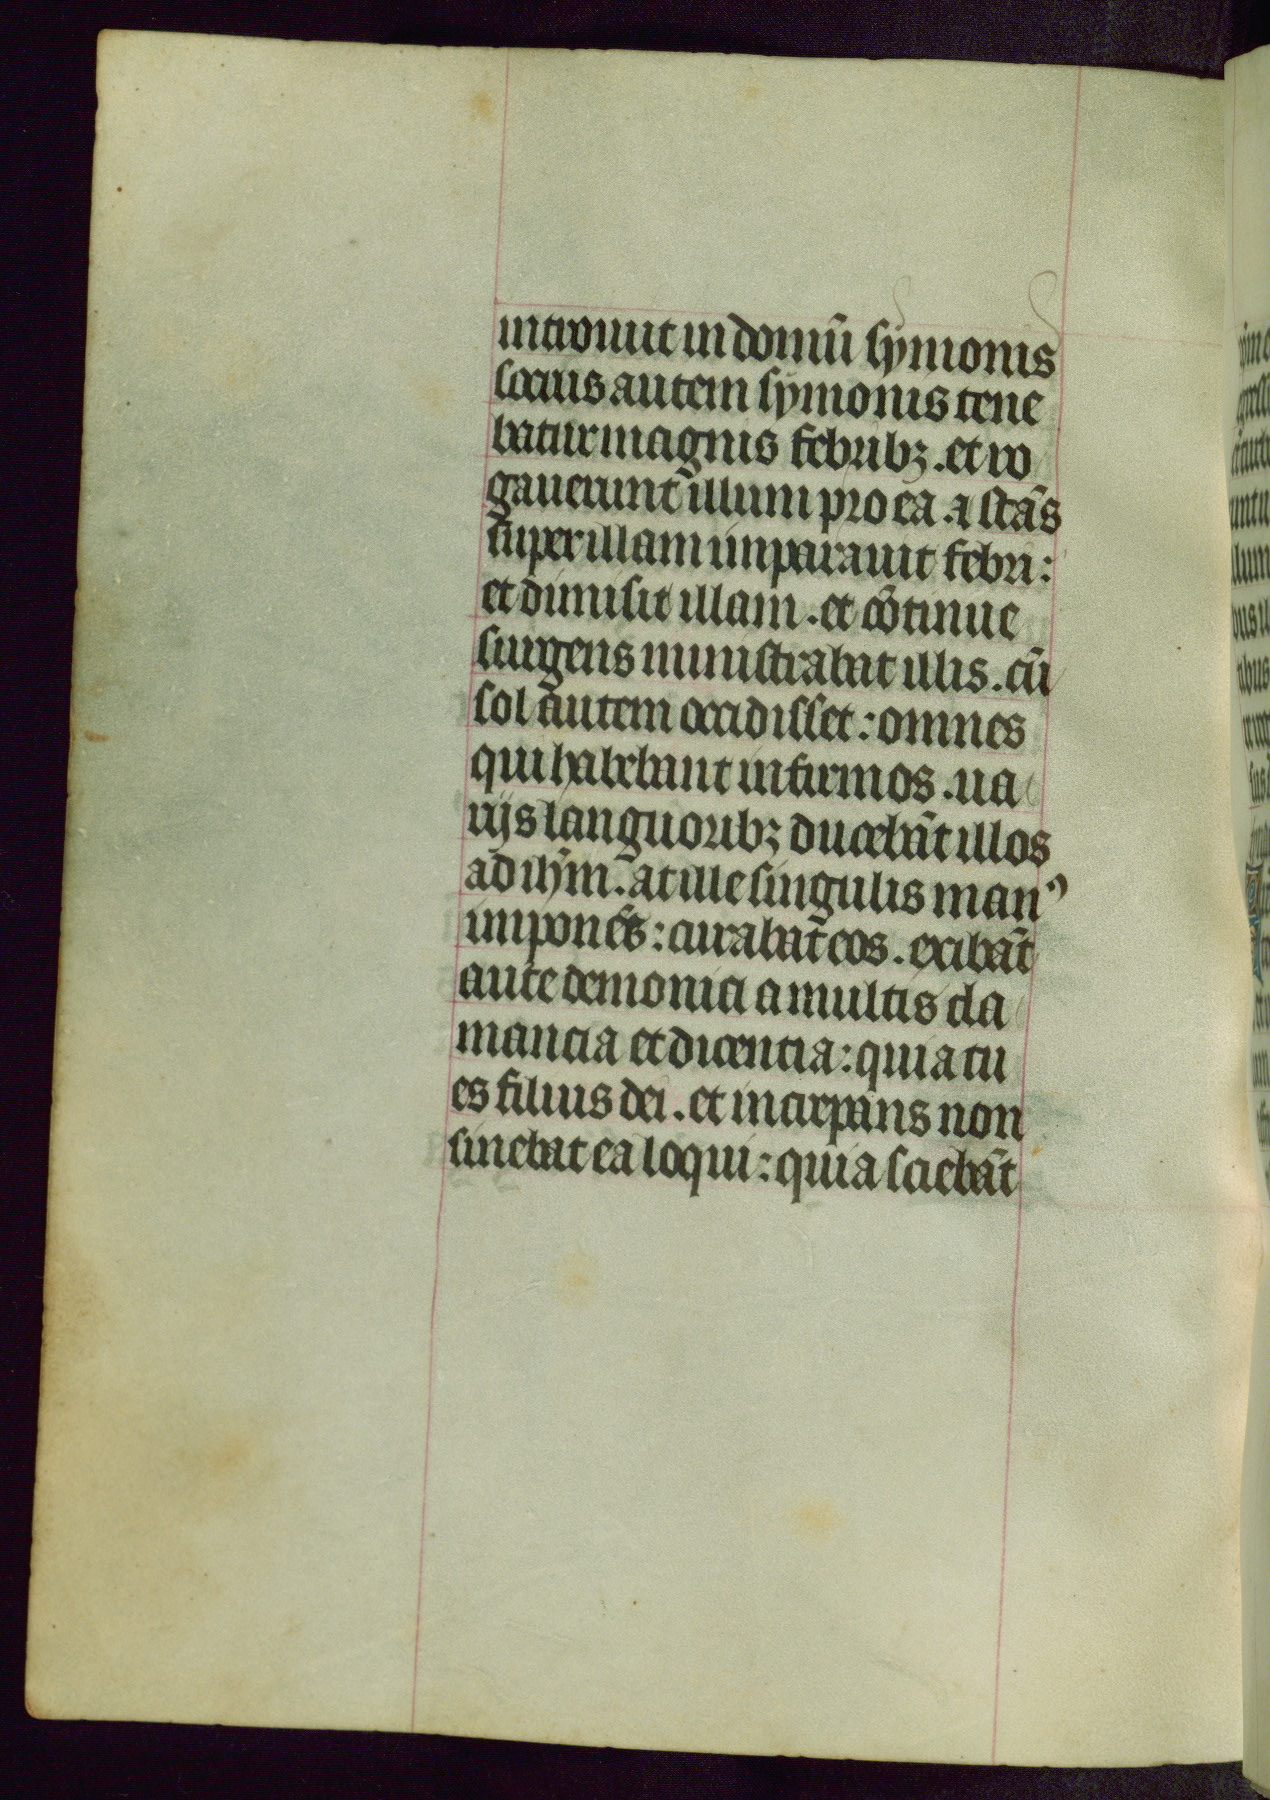 intrauit in domū symonis
socrus autem symonis tene
batur magnis febribꝫ . et ro
gauerunt illum pro ea . ⁊ stās
super illam imperauit febri :
et dimisit illam . et cōtinue
surgens ministrabat illis . cū
sol autem occidisset : omnes
qui habebant infirmos . ua
rijs languoribꝫ ducebāt illos
ad ihm̄ . at ille singulis manꝰ
imponēs : curabat eos . exibāt
autē demonia a multis cla
mancia et dicentia : quia tu
es filius dei . et increpans non
sinebat ea loqui : quia sciebāt